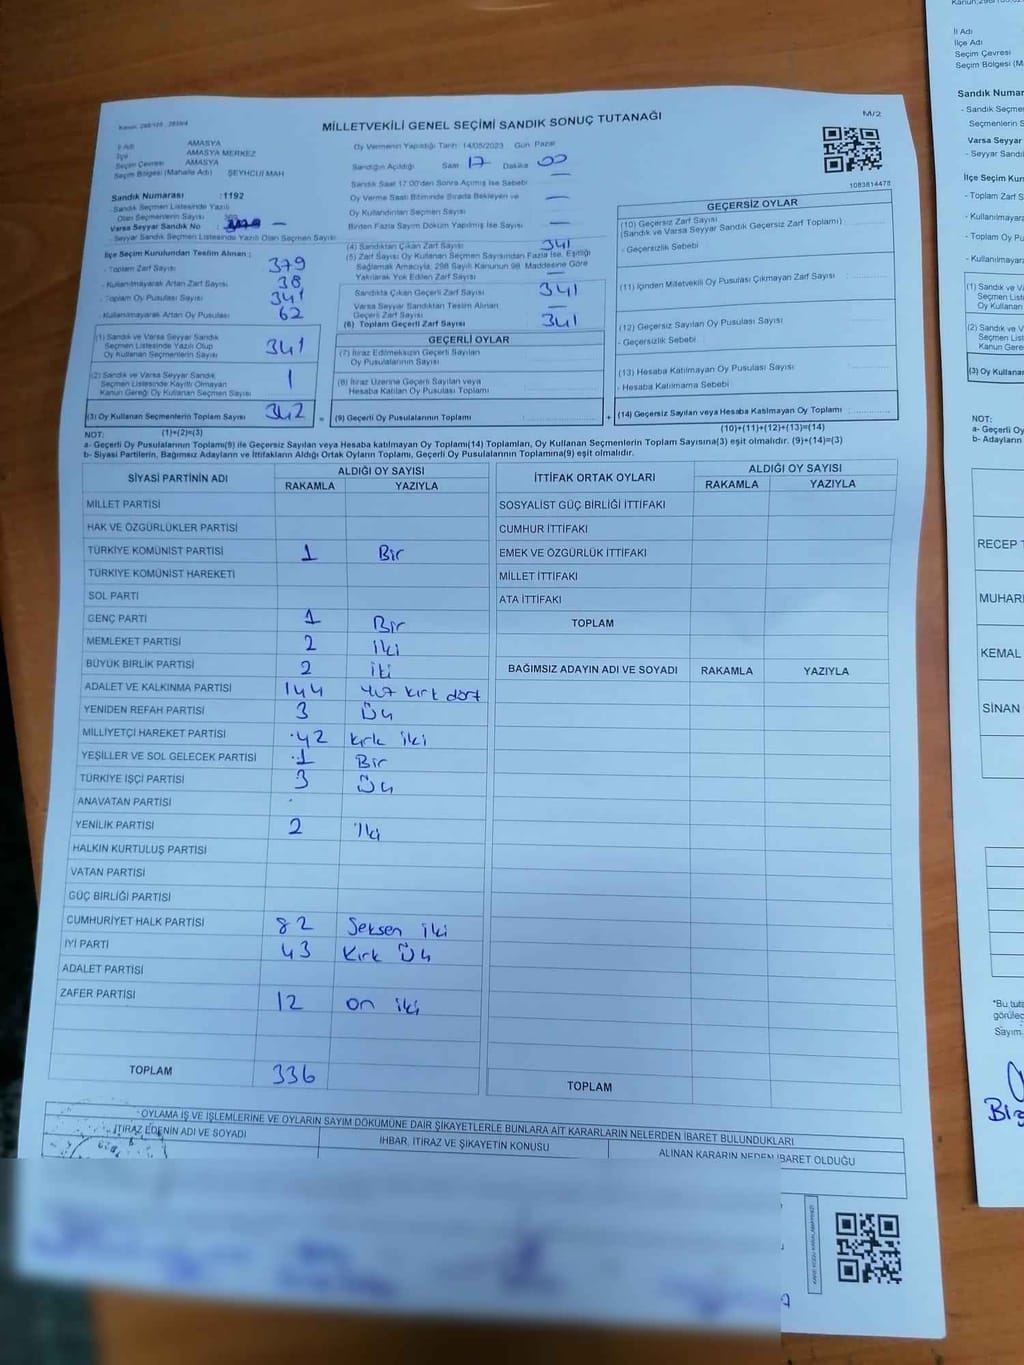 MİLLETVEKİLİ GENEL SEÇİMİ SANDIK SONUÇ TUTANAĞI
M/2
İl Adı AMASYA
İlçe AMASYA MERKEZ
Seçim Çevresi AMASYA
Seçim Bölgesi (Mahalle Adı) ŞEYHCUİ MAH
Oy Vermenin Yapıldığı Tarih 14/05/2023 Gün Pazar
Sandığın Açıldığı Saat 17 Dakika 00
Sandık Saat 17.00'den Sonra Açılmış İse Sebebi
Oy Verme Saati Bitiminde Sırada Bekleyen ve
Oy Kullandırılan Seçmen Sayısı
Birden Fazla Sayım Döküm Yapılmış İse Sayısı
1083814478
Sandık Numarası :1192
- Sandık Seçmen Listesinde Yazılı
Olan Seçmenlerin Sayısı
Varsa Seyyar Sandık No : –
- Seyyar Sandık Seçmen Listesinde Yazılı Olan Seçmen Sayısı
İlçe Seçim Kurulundan Teslim Alınan ;
- Toplam Zarf Sayısı 379
- Kullanılmayarak Artan Zarf Sayısı 38
- Toplam Oy Pusulası Sayısı 341
- Kullanılmayarak Artan Oy Pusulası 62
(1) Sandık ve Varsa Seyyar Sandık
Seçmen Listesinde Yazılı Olup
Oy Kullanan Seçmenlerin Sayısı 341
(2) Sandık ve Varsa Seyyar Sandık
Seçmen Listesinde Kayıtlı Olmayan
Kanun Gereği Oy Kullanan Seçmen Sayısı 1
(3) Oy Kullanan Seçmenlerin Toplam Sayısı 342 =
(4) Sandıktan Çıkan Zarf Sayısı 341
(5) Zarf Sayısı Oy Kullanan Seçmen Sayısından Fazla İse, Eşitliği
Sağlamak Amacıyla, 298 Sayılı Kanunun 98. Maddesine Göre
Yakılarak Yok Edilen Zarf Sayısı –
Sandıkta Çıkan Geçerli Zarf Sayısı 341
Varsa Seyyar Sandıktan Teslim Alınan
Geçerli Zarf Sayısı –
(6) Toplam Geçerli Zarf Sayısı 341
GEÇERLİ OYLAR
(7) İtiraz Edilmeksizin Geçerli Sayılan
Oy Pusulalarının Sayısı
(8) İtiraz Üzerine Geçerli Sayılan veya
Hesaba Katılan Oy Pusulası Toplamı
(9) Geçerli Oy Pusulalarının Toplamı +
GEÇERSİZ OYLAR
(10) Geçersiz Zarf Sayısı
(Sandık ve Varsa Seyyar Sandık Geçersiz Zarf Toplamı)
- Geçersizlik Sebebi
(11) İçinden Milletvekili Oy Pusulası Çıkmayan Zarf Sayısı
(12) Geçersiz Sayılan Oy Pusulası Sayısı
- Geçersizlik Sebebi
(13) Hesaba Katılmayan Oy Pusulası Sayısı
- Hesaba Katılmama Sebebi
(14) Geçersiz Sayılan veya Hesaba Katılmayan Oy Toplamı
(10)+(11)+(12)+(13)=(14)
NOT: (1)+(2)=(3)
a- Geçerli Oy Pusulalarının Toplamı(9) ile Geçersiz Sayılan veya Hesaba katılmayan Oy Toplamı(14) Toplamları, Oy Kullanan Seçmenlerin Toplam Sayısına(3) eşit olmalıdır. (9)+(14)=(3)
b- Siyasi Partilerin, Bağımsız Adayların ve İttifakların Aldığı Ortak Oyların Toplamı, Geçerli Oy Pusulalarının Toplamına(9) eşit olmalıdır.
SİYASİ PARTİNİN ADI ALDIĞI OY SAYISI
RAKAMLA YAZIYLA
MİLLET PARTİSİ
HAK VE ÖZGÜRLÜKLER PARTİSİ
TÜRKİYE KOMÜNİST PARTİSİ 1 Bir
TÜRKİYE KOMÜNİST HAREKETİ
SOL PARTİ
GENÇ PARTİ 1 Bir
MEMLEKET PARTİSİ 2 iki
BÜYÜK BİRLİK PARTİSİ 2 iki
ADALET VE KALKINMA PARTİSİ 144 yüz kırk dört
YENİDEN REFAH PARTİSİ 3 Üç
MİLLİYETÇİ HAREKET PARTİSİ 42 kırk iki
YEŞİLLER VE SOL GELECEK PARTİSİ 1 Bir
TÜRKİYE İŞÇİ PARTİSİ 3 Üç
ANAVATAN PARTİSİ
YENİLİK PARTİSİ 2 İki
HALKIN KURTULUŞ PARTİSİ
VATAN PARTİSİ
GÜÇ BİRLİĞİ PARTİSİ
CUMHURİYET HALK PARTİSİ 82 Seksen iki
İYİ PARTİ 43 Kırk Üç
ADALET PARTİSİ
ZAFER PARTİSİ 12 on iki
TOPLAM 336
İTTİFAK ORTAK OYLARI ALDIĞI OY SAYISI
RAKAMLA YAZIYLA
SOSYALİST GÜÇ BİRLİĞİ İTTİFAKI
CUMHUR İTTİFAKI
EMEK VE ÖZGÜRLÜK İTTİFAKI
MİLLET İTTİFAKI
ATA İTTİFAKI
TOPLAM
BAĞIMSIZ ADAYIN ADI VE SOYADI RAKAMLA YAZIYLA
TOPLAM
OYLAMA İŞ VE İŞLEMLERİNE VE OYLARIN SAYIM DÖKÜMÜNE DAİR ŞİKAYETLERLE BUNLARA AİT KARARLARIN NELERDEN İBARET BULUNDUKLARI
İTİRAZ EDENİN ADI VE SOYADI
İHBAR, İTİRAZ VE ŞİKAYETİN KONUSU
ALINAN KARARIN NEDEN İBARET OLDUĞU
İl Adı
İlçe Adı
Seçim Çevresi
Seçim Bölgesi (M
Sandık Numar
- Sandık Seçmen
Seçmenlerin S
Varsa Seyyar
- Seyyar Sandı
İlçe Seçim Kuru
- Toplam Zarf S
- Kullanılmayara
- Toplam Oy Pu
- Kullanılmayara
(1) Sandık ve Va
Seçmen List
Oy Kullanan
(2) Sandık ve V
Seçmen List
Kanun Gere
(3) Oy Kullanan
NOT:
a- Geçerli Oy
b- Adayların
RECEP T
MUHAR
KEMAL
SİNAN
*Bu tuta
görülec
Sayım